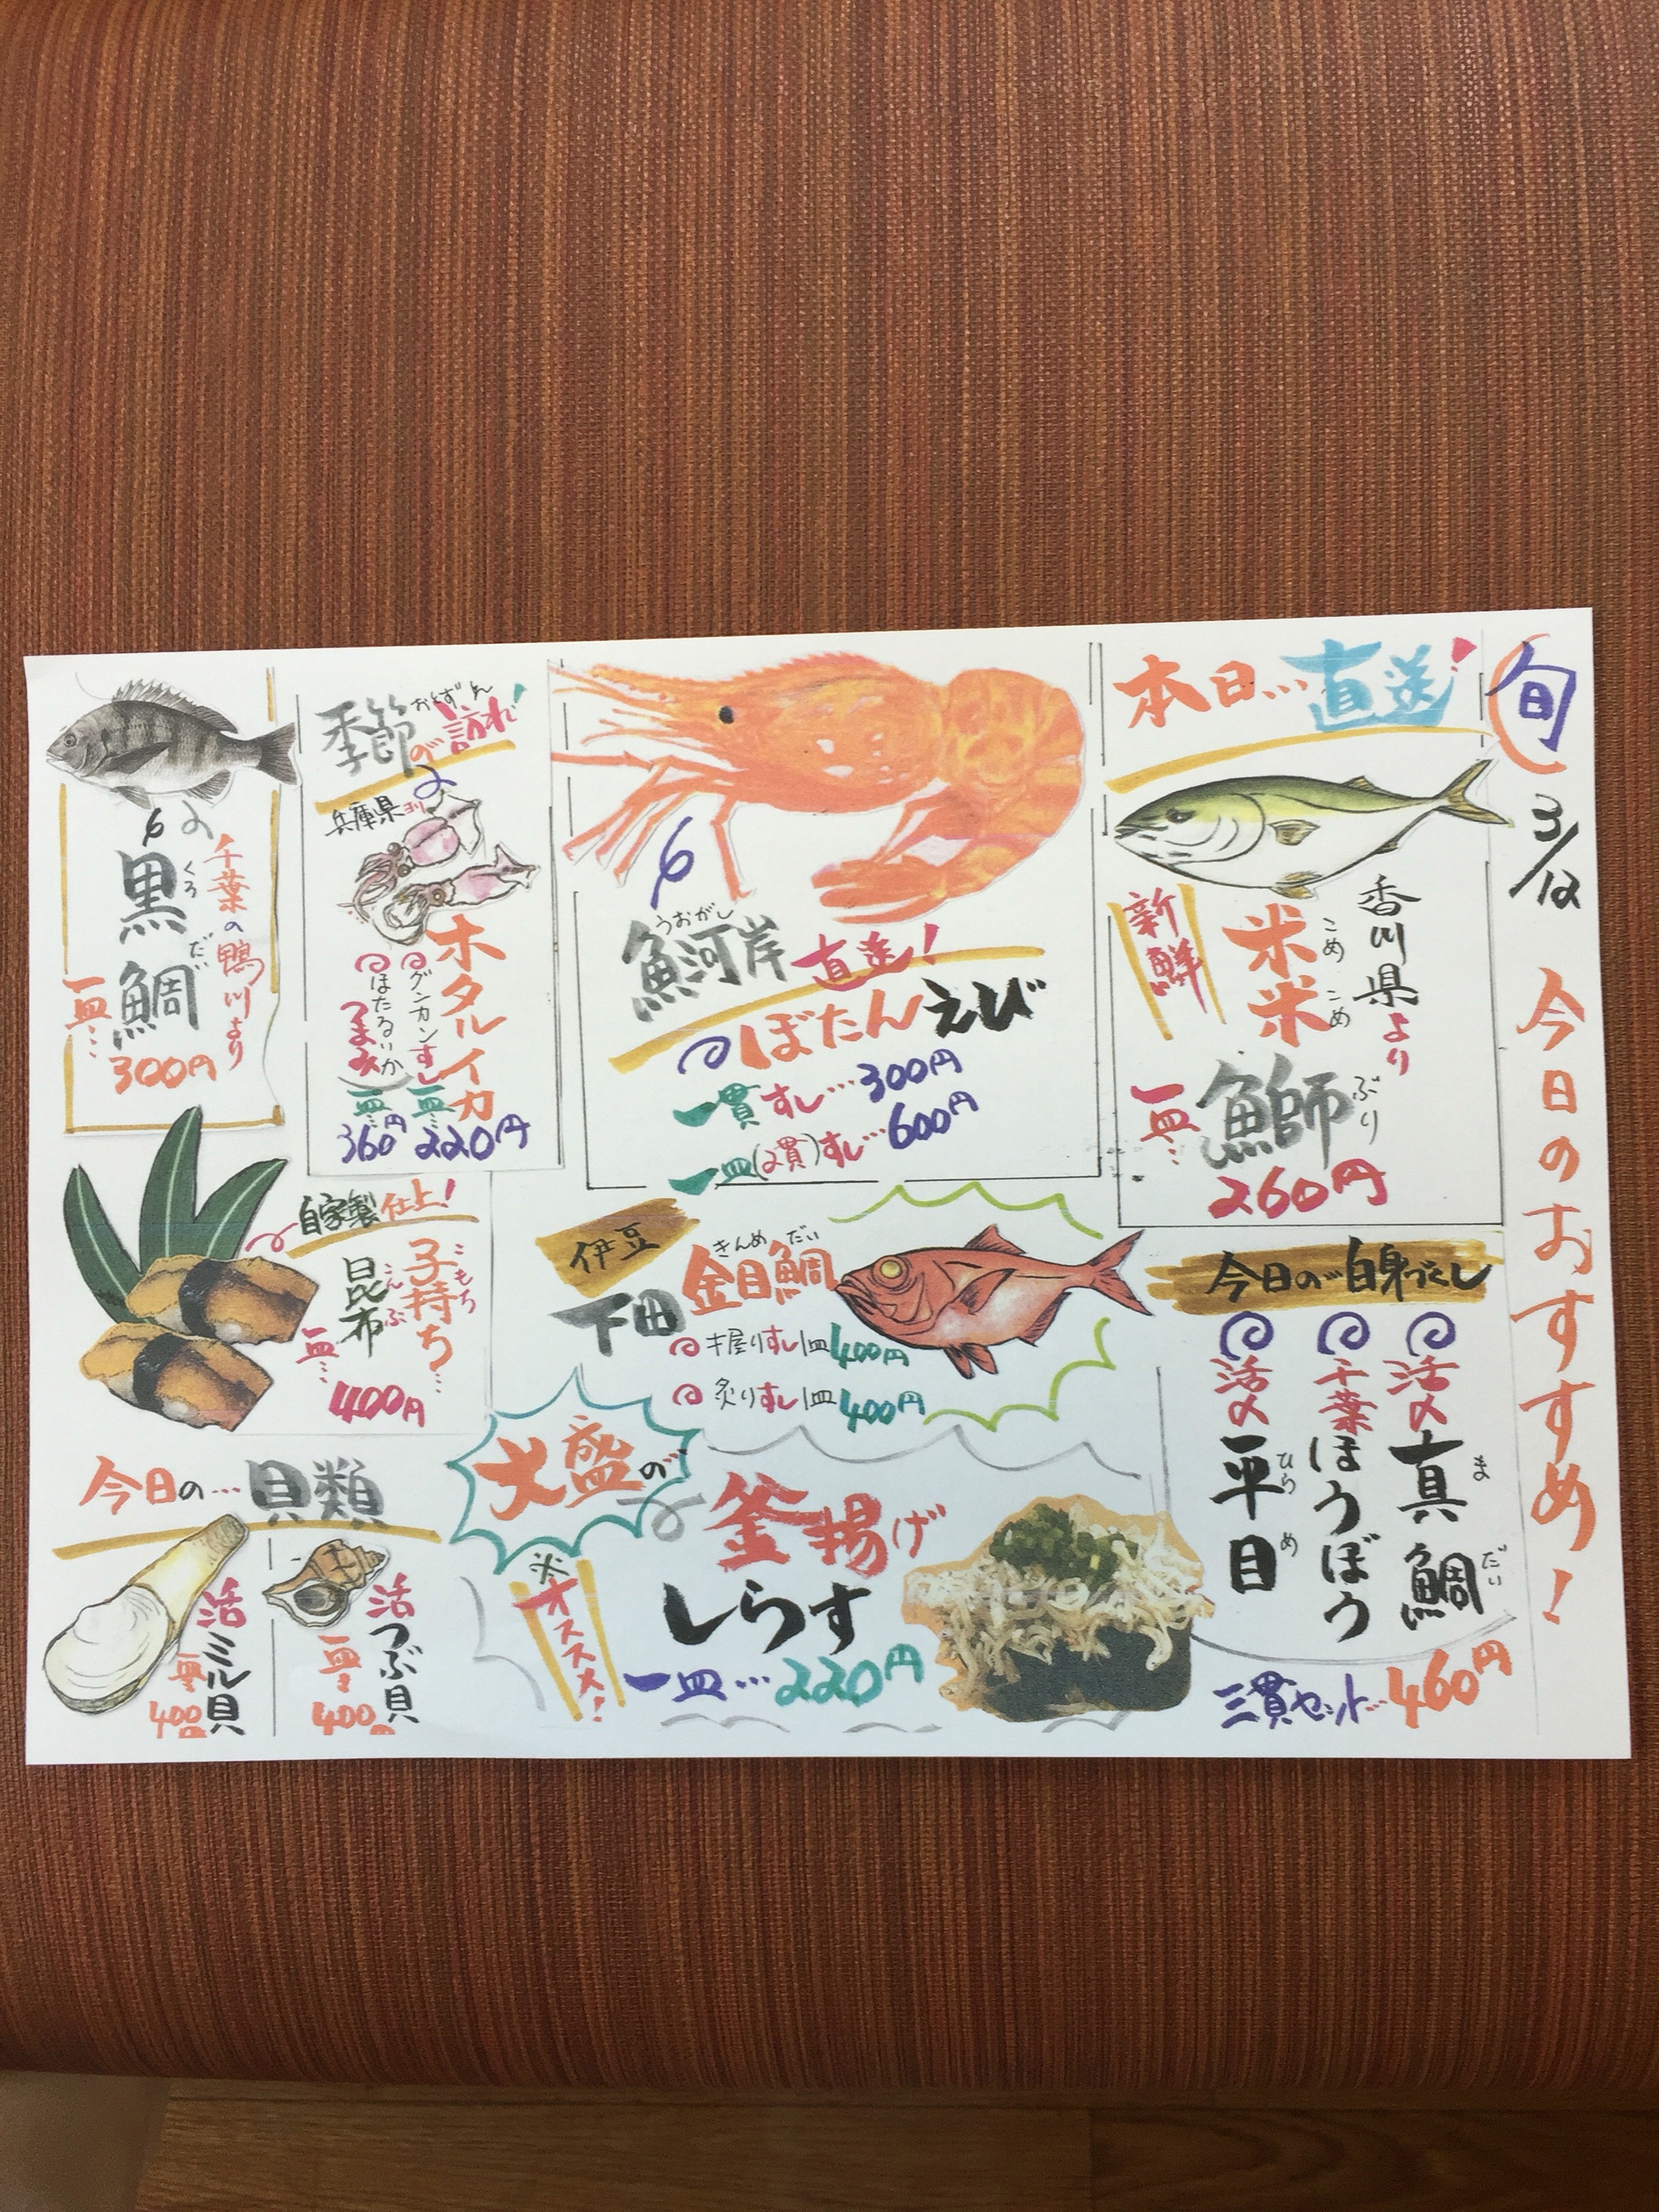 旬
3/12
今日のおすすめ!
本日…直送
香川県より
こめ こめ
米米
ぶり
鰤
新鮮
一皿…
260円
うおがし
魚河岸直送!
ぼたんえび
一貫すし…300円
一皿(2貫)すし…600円
おとずれ
季節の訪れ
兵庫県ヨリ
ホタルイカ
グンカンすし
一皿…
220円
ほたるいか
つまみ
一皿…
360円
千葉の鴨川より
くろ だい
黒鯛
一皿…
300円
今日の白身づくし
活〆
ま だい
真鯛
千葉
ほうぼう
活〆
ひら め
平目
三貫セット…460円
伊豆
下田
きんめ だい
金目鯛
握りすし一皿400円
炙りすし一皿400円
自家製仕上!
こもち
子持ち…
こんぶ
昆布
一皿…
400円
大盛の
釜揚げ
しらす
一皿…220円
※オススメ!
今日の…貝類
活つぶ貝
一皿…
400円
活ミル貝
一皿…
400円